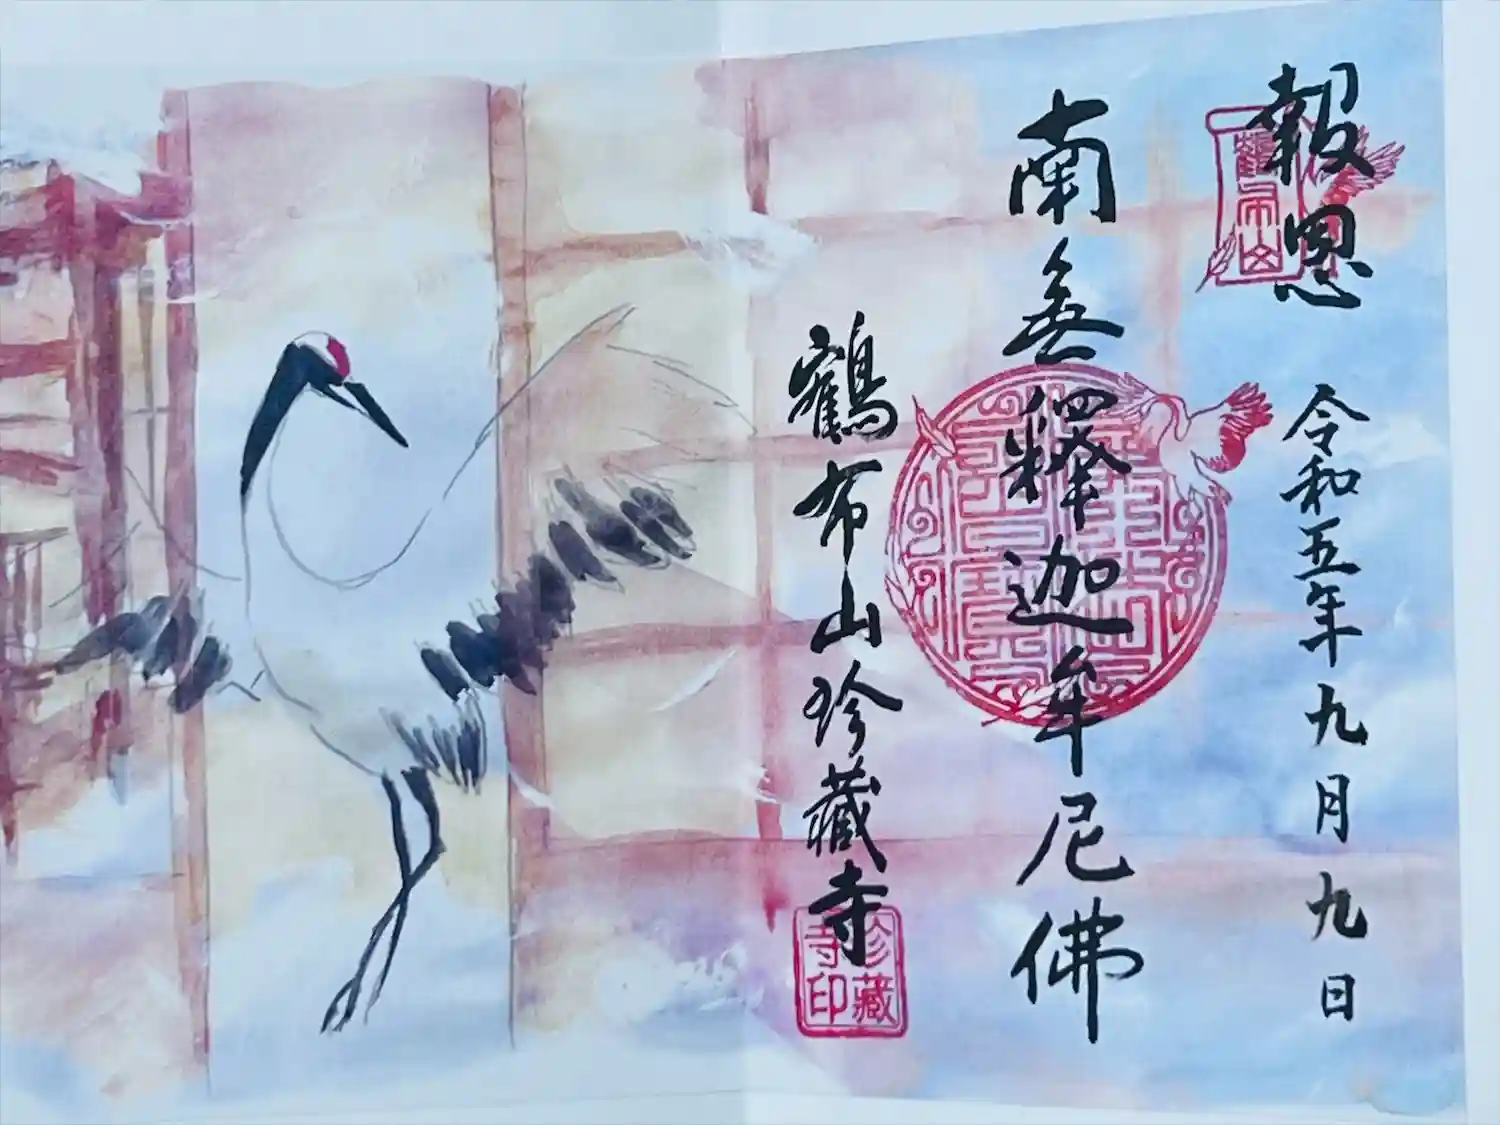 報恩
令和五年九月九日
南無釋迦牟尼佛
鶴布山珍藏寺
鶴布山
珍藏寺印